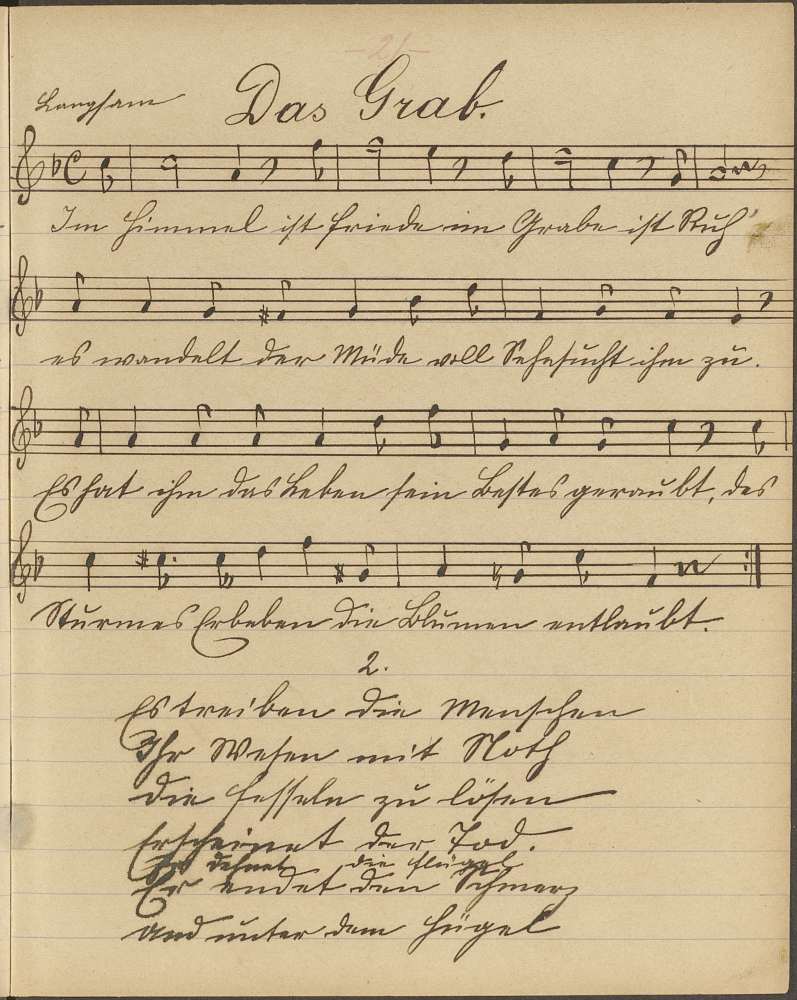 -21-
Langsam Das Grab.
Im Himmel ist Friede im Grabe ist Ruh'
es wandelt der Müde voll Sehnsucht ihm zu.
Es hat ihm das Leben sein Bestes geraubt, des
Sturmes Erbeben die Blumen entlaubt.
2.
Es treiben die Menschen
Ihr Wesen mit Noth
die Fesseln zu lösen
Erscheinet der Tod.
Er dehnet die Flügel
Er endet den Schmerz
Und unter dem Hügel